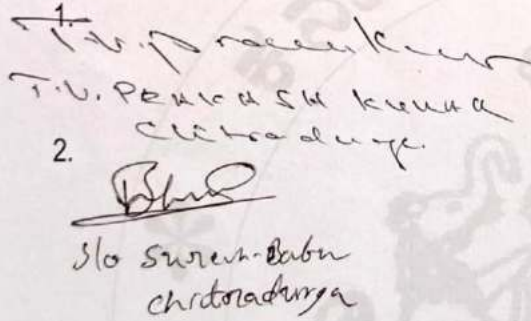 1.
T.V. Prakash Kumar
T.V. PRAKASH KUMAR
Chitradurga.
2.
S/o Suresh-Babu
Chitradurga